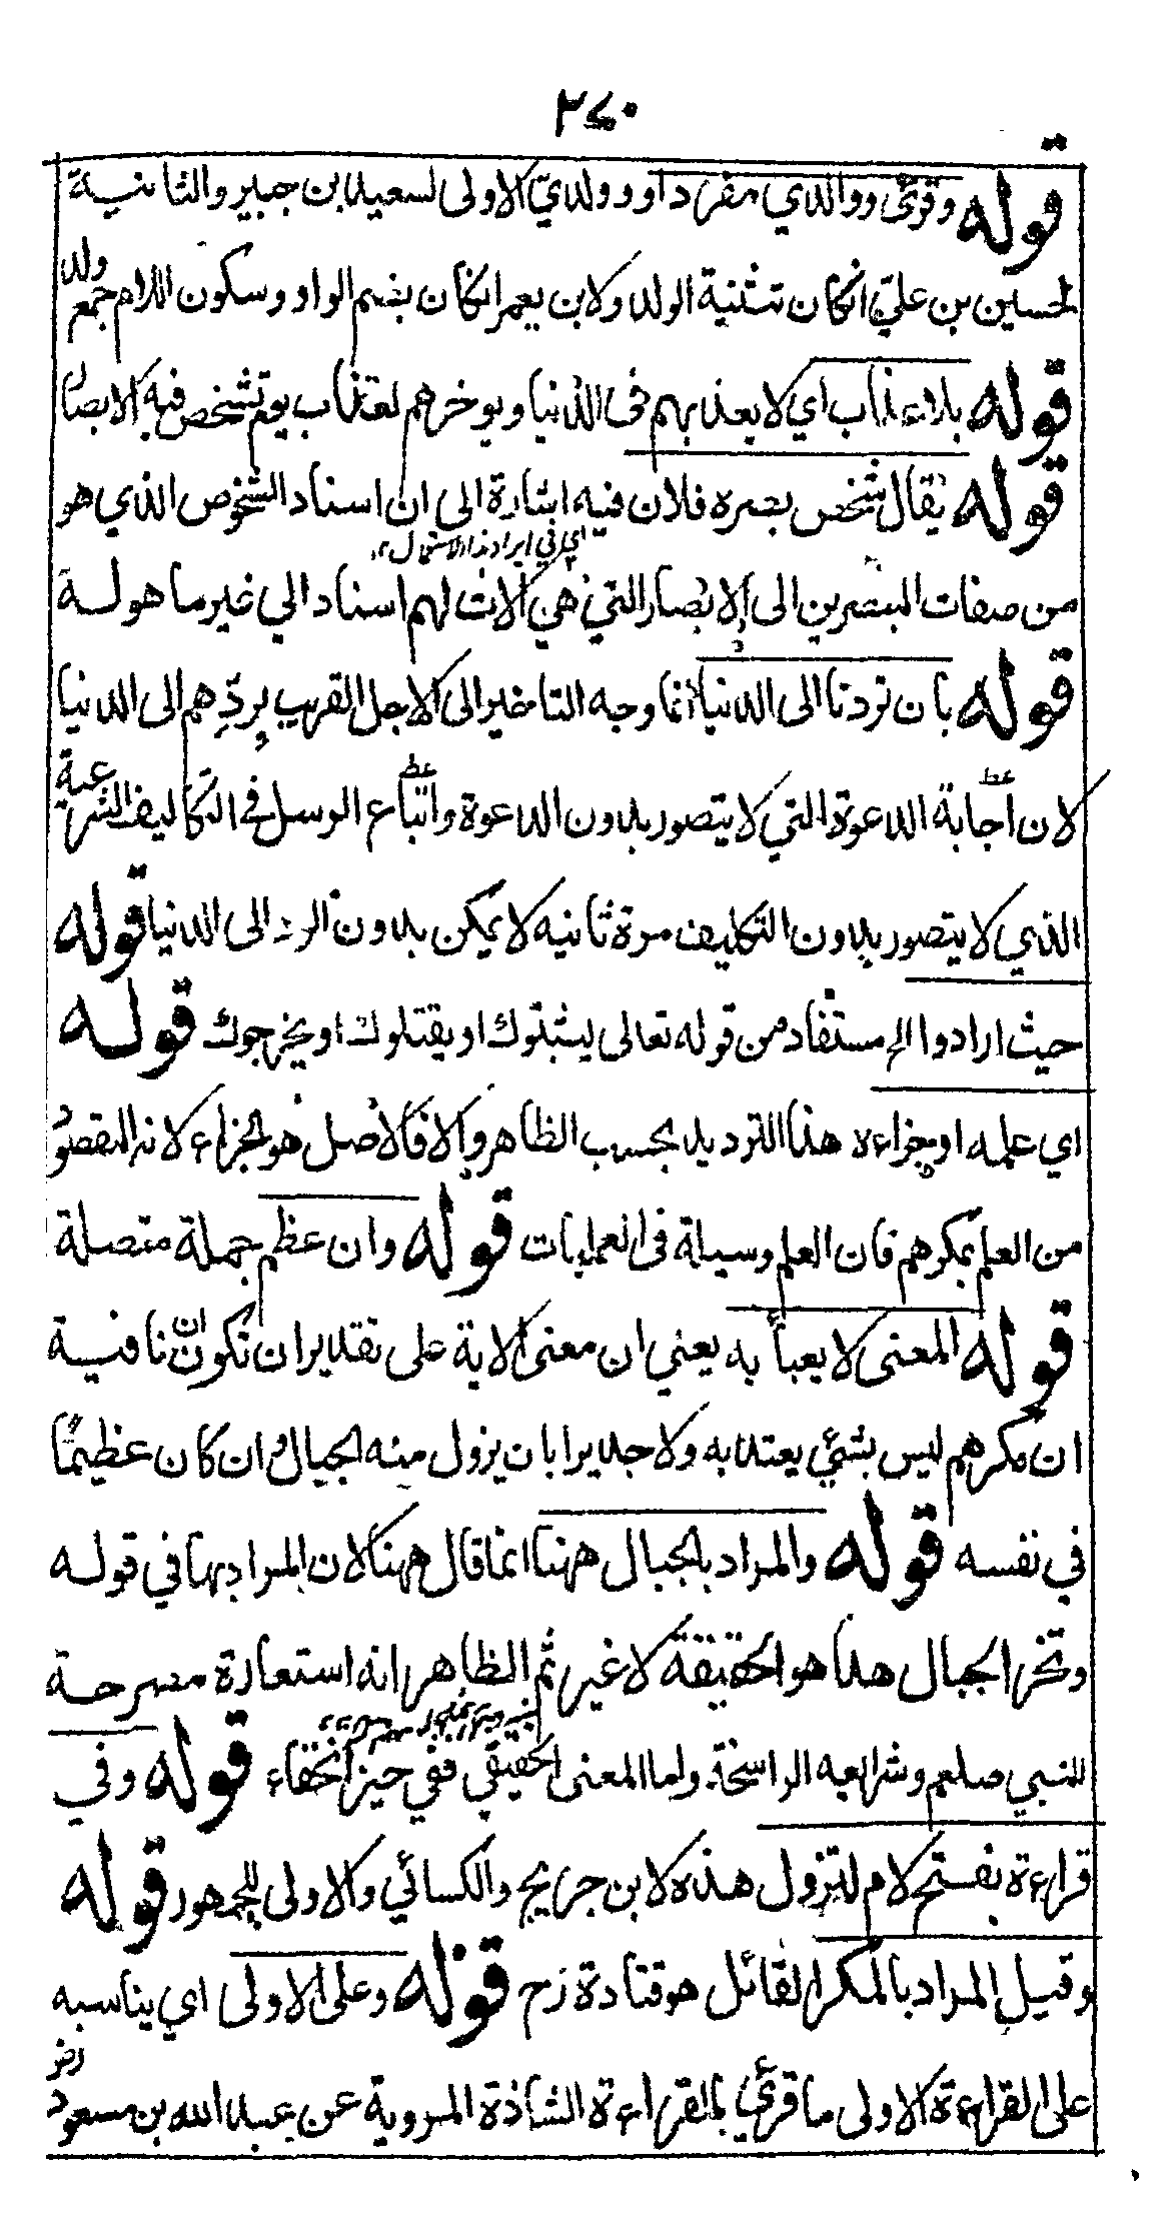 ٢٧٠
قوله وقرئ ووالدي مفردا وولدي الاولى لسعيد بن جبير والثانية
لحسين بن علي انكان تثنية الولد ولابن يعمر انكان بضم الواو وسكون اللام جمع ولد
قوله بلا عذاب اي لا يعذبهم في الدنيا ويوخرهم لعذاب يوم تشخص فيه الابصار
قوله يقال شخص بصره فلان فيه اشارة الى ان اسناد الشخوص الذي هو
اي في ايراد هذا الاستعمال ١٢
من صفات المبصرين الى الابصار التي هي آلات لهم اسناد الي غير ما هولة
قوله بان تردنا الى الدنيا انما وجه التاخير الى الاجل القريب بردهم الى الدنيا
لان اجابة الدعوة التي لا يتصور بدون الدعوة واتباع الرسل في التكاليف الشرعية
الذي لا يتصور بدون التكليف مرة ثانيه لا يمكن بدون الرد الى الدنيا قوله
حيث ارادوا الخ مستفاد من قوله تعالى ليثبتوك او يقتلوك او يخرجوك قوله
اي علمه او جزاءه هذا الترديد بحسب الظاهر والا فالاصل هو الجزاء لانه المقصود
من العلم بمكرهم فان العلم وسيلة فى العمليات قوله وان عظم جملة متصلة
قوله المعنى لا يعبأ به يعني ان معنى الاية على تقدير ان تكون ان نافية
ان مكرهم ليس بشئ يعتد به ولا جديرا بان يزول منه الجبال وان كان عظيما
في نفسه قوله والمراد بالجبال ههنا انما قال ههنا لان المراد بها في قوله
وتخر الجبال هدا هو الحقيقة لا غير ثم الظاهر انه استعارة مصرحة
للنبي صلعم وشرايعه الراسخة واما المعنى الحقيقي ففي حيز الخفاء قوله وفي
قراءة بفتح لام لتزول هذه لابن جريج والكسائي والاولى للجمهور قوله
وقيل المراد بالمكر القائل هو قتادة رح قوله وعلى الاولى اي يناسبه
على القراءة الاولى ما قرئ بالقراءة الشاذة المروية عن عبد الله بن مسعود رضـ